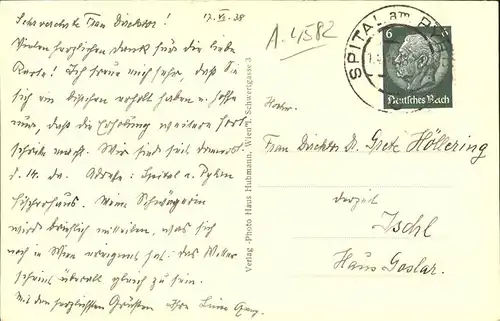 Sehr verehrte Frau Direktor! 17. VI. 38
Vielen herzlichen Dank für die liebe
Karte! Ich freue mich sehr, daß Sie
sich ein bischen erholt haben u. hoffe
nur, daß die Erholung weitere Fort-
schritte macht. Wir sind seit Donnerst.
d. 14. da. Adresse: Spital a. Pyhrn
Fischerhaus. Meine Schwägerin
wird brieflich mitteilen, was sich
noch in Wien ereignet hat. Das Wetter
scheint überall gleich zu sein.
Mit den herzlichsten Grüßen Ihre
Verlag-Photo Hans Hubmann, Wien I, Schwertgasse 3
A.4582
SPITAL am PYHRN
6 6
Deutsches Reich
Hochw.
Frau Direktor Dr. Grete Höllering
derzeit
Ischl
Haus Goslar.